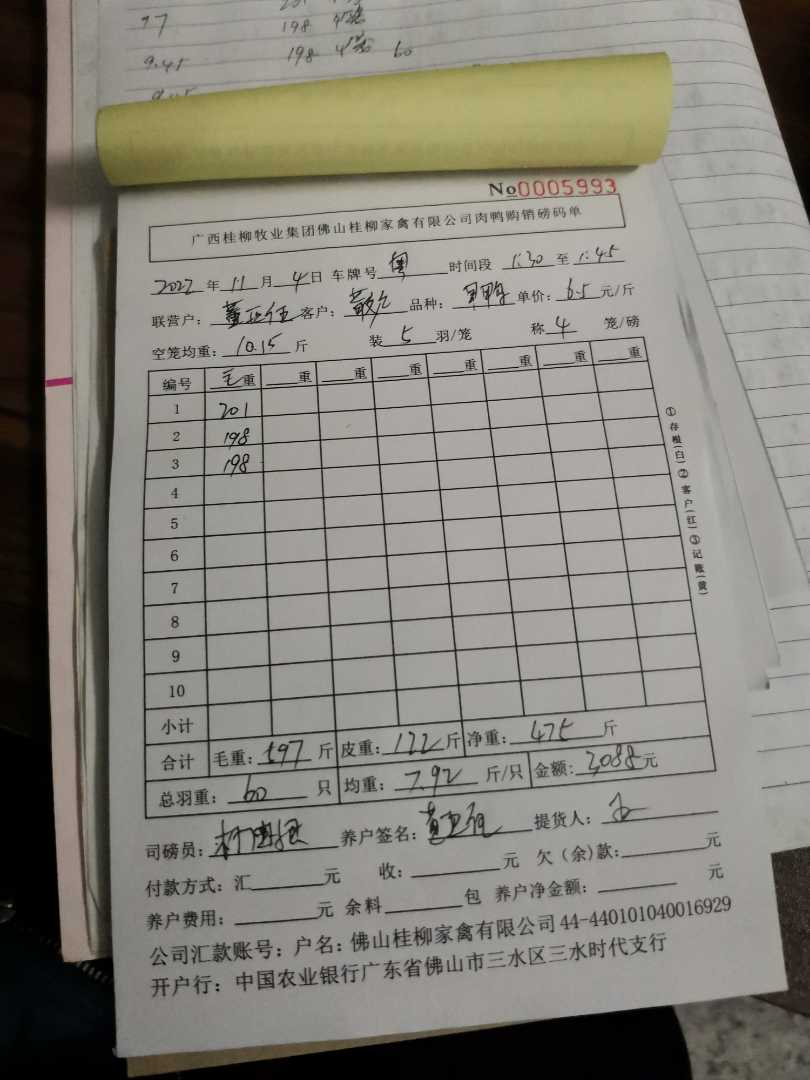 201
197 198
9.45 198 60
9.45
No0005993
广西桂柳牧业集团佛山桂柳家禽有限公司肉鸭购销磅码单
2022年11月4日 车牌号 粤 时间段 1:30 至 1:45
联营户: 客户: 品种: 单价: 6.5 元/斤
空笼均重: 10.15 斤 装 5 羽/笼 称 4 笼/磅
编号 毛重 重 重 重 重 重 重 重
1 201
2 198
3 198
4
5
6
7
8
9
10
小计
合计 毛重: 597 斤 皮重: 122 斤 净重: 475 斤
总羽重: 60 只 均重: 7.92 斤/只 金额: 3088 元
司磅员: 养户签名: 提货人:
付款方式:汇 元 收: 元 欠(余)款: 元
养户费用: 元 余料 包 养户净金额: 元
公司汇款账号:户名:佛山桂柳家禽有限公司44-440101040016929
开户行:中国农业银行广东省佛山市三水区三水时代支行
①存根(白)②客户(红)③记账(黄)